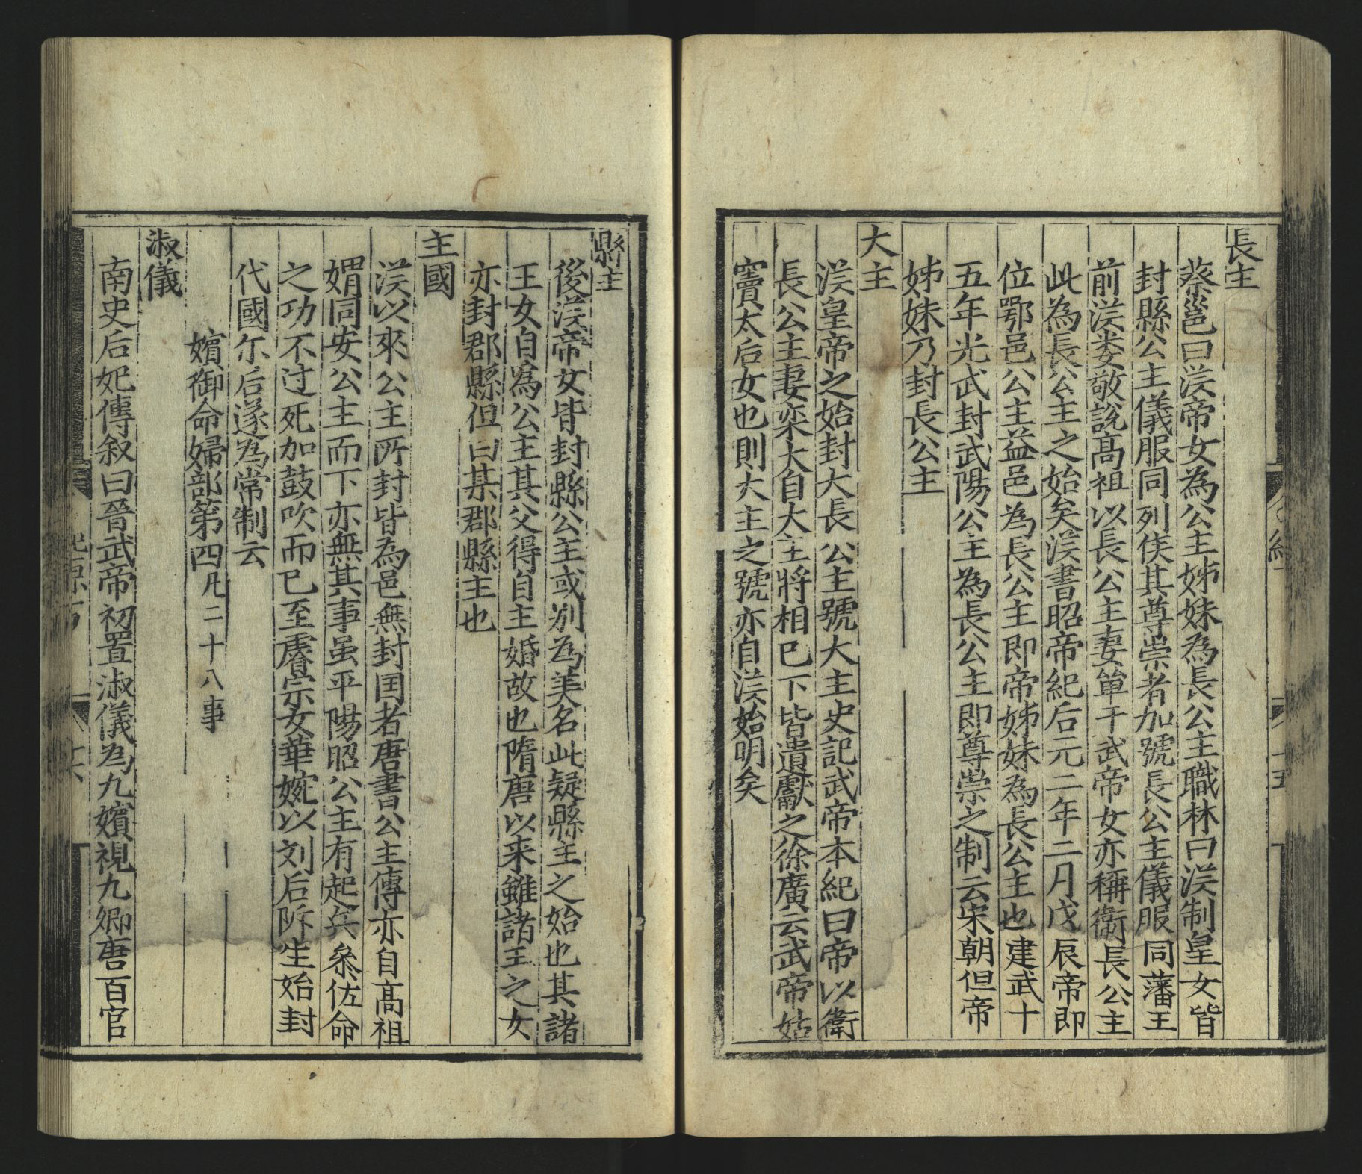 長主
蔡邕曰漢帝女為公主姊妹為長公主職林曰漢制皇女皆
封縣公主儀服同列侯其尊崇者加號長公主儀服同藩王
前漢婁敬說高祖以長公主妻單于武帝女亦稱衛長公主
此為長公主之始矣漢書昭帝紀后元二年二月戊辰帝即
位鄂邑公主益邑為長公主即帝姊妹為長公主也建武十
五年光武封武陽公主為長公主即尊崇之制云宋朝但帝
姊妹乃封長公主
大主
漢皇帝之始封大長公主號大主史記武帝本紀曰帝以衛
長公主妻欒大自大主將相已下皆遺獻之徐廣云武帝姑
竇太后女也則大主之號亦自漢始明矣
縣主
後漢帝女皆封縣公主或別為美名此疑縣主之始也其諸
王女自為公主其父得自主婚故也隋唐以来雖諸王之女
亦封郡縣但曰某郡縣主也
主國
漢以來公主所封皆為邑無封国者唐書公主傳亦自高祖
媦同安公主而下亦無其事虽平陽昭公主有起兵叅佐命
之功不过死加鼓吹而已至睿宗女華婉以刘后所生始封
代國尔后遂為常制云
嬪御命婦部第四凡二十八事
淑儀
南史后妃傳叙曰晉武帝初置淑儀為九嬪視九卿唐百官